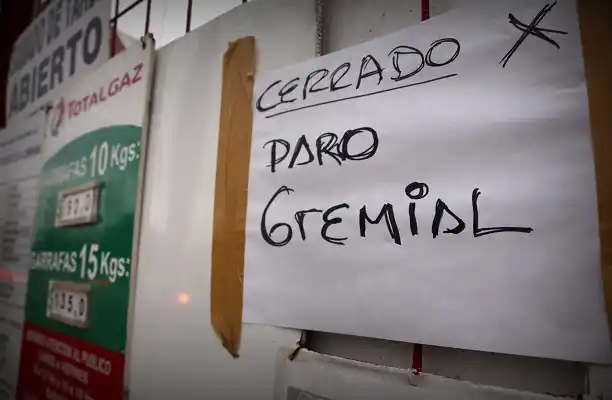 ABIERTO
TOTALGAZ
GARRAFAS 10 Kgs:
GARRAFAS 15 Kgs:
135.0
CERRADO X
PARO
GREMIAL